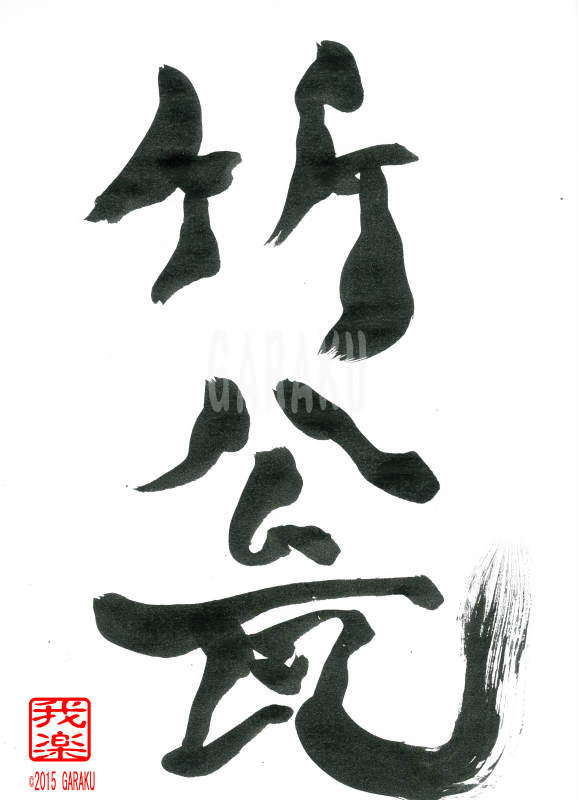 竹
瓮
GARAKU
我楽
©2015 GARAKU